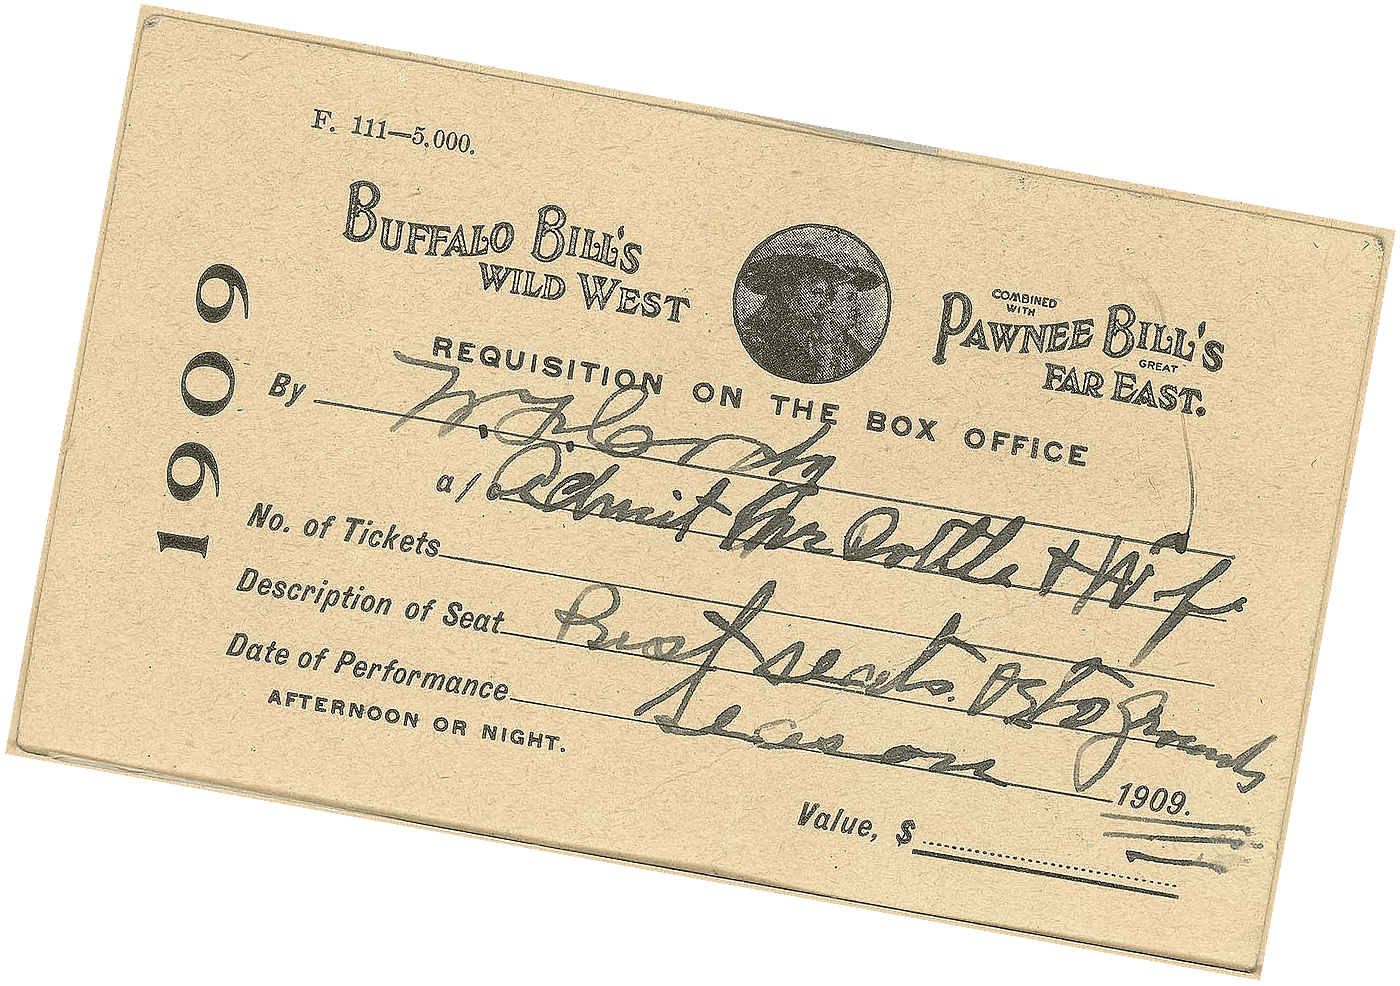 F. 111—5,000.
BUFFALO BILL'S
WILD WEST
COMBINED
WITH
PAWNEE BILL'S
GREAT
FAR EAST.
1909
REQUISITION ON THE BOX OFFICE
By W. F. Cody
a/c Admit Mr & Wife
No. of Tickets
Description of Seat Best seats. &  to grounds
Date of Performance season 1909.
AFTERNOON OR NIGHT.
Value, $